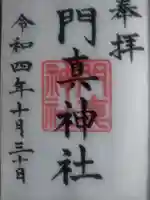 奉拝
門真神社
令和四年十月三十日